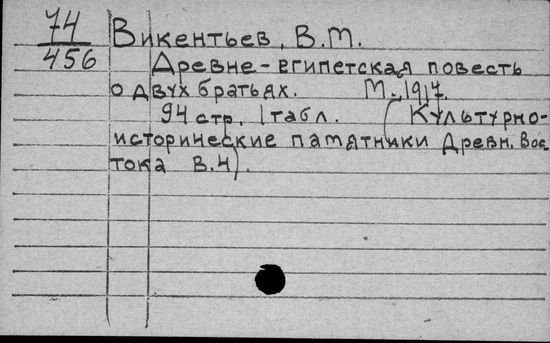 74
456
Викентьев, В.М.
Древне-египетская повесть
о двух братьях. М., 1917.
94 стр. 1 табл. (Культурно-
исторические памятники Древн. Вос
тока В.4).